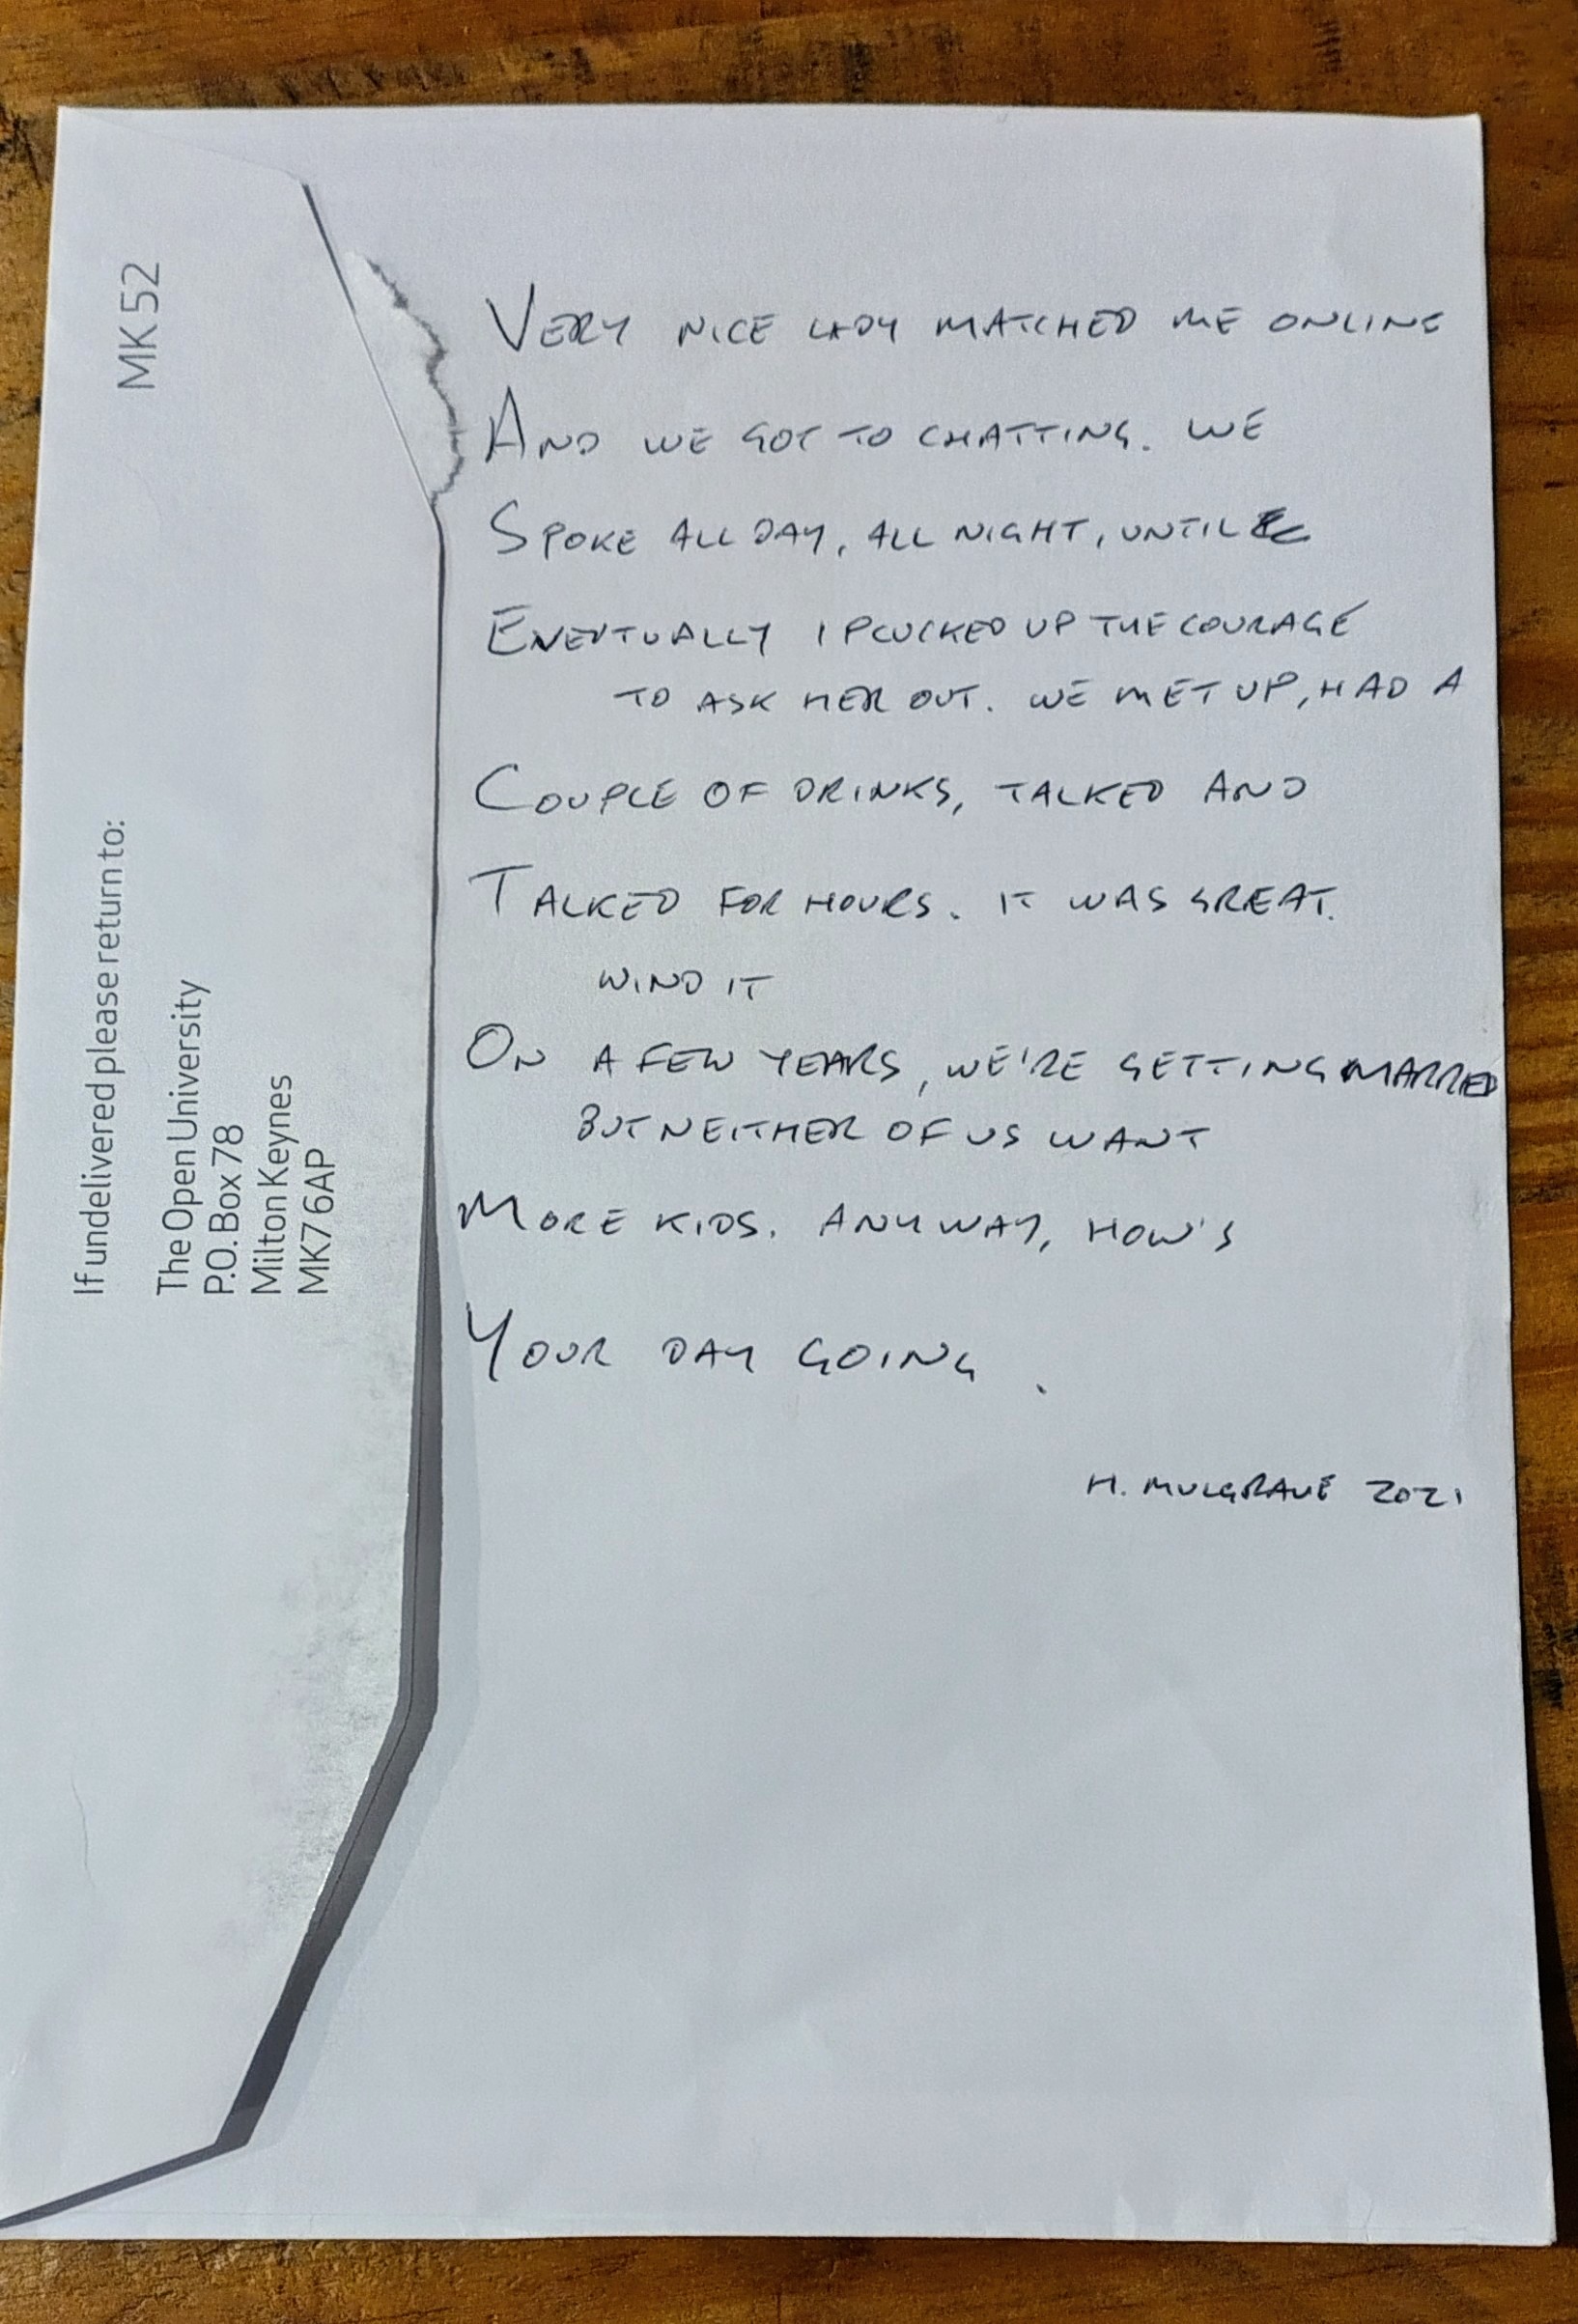 MK52
If undelivered please return to:
The Open University
P.O. Box 78
Milton Keynes
MK7 6AP
VERY NICE LADY MATCHED ME ONLINE
AND WE GOT TO CHATTING. WE
SPOKE ALL DAY, ALL NIGHT, UNTIL
EVENTUALLY I PLUCKED UP THE COURAGE
TO ASK HER OUT. WE MET UP, HAD A
COUPLE OF DRINKS, TALKED AND
TALKED FOR HOURS. IT WAS GREAT.
WIND IT
ON A FEW YEARS, WE'RE GETTING MARRIED
BUT NEITHER OF US WANT
MORE KIDS. ANYWAY, HOW'S
YOUR DAY GOING.
H. MULGRAVE 2021